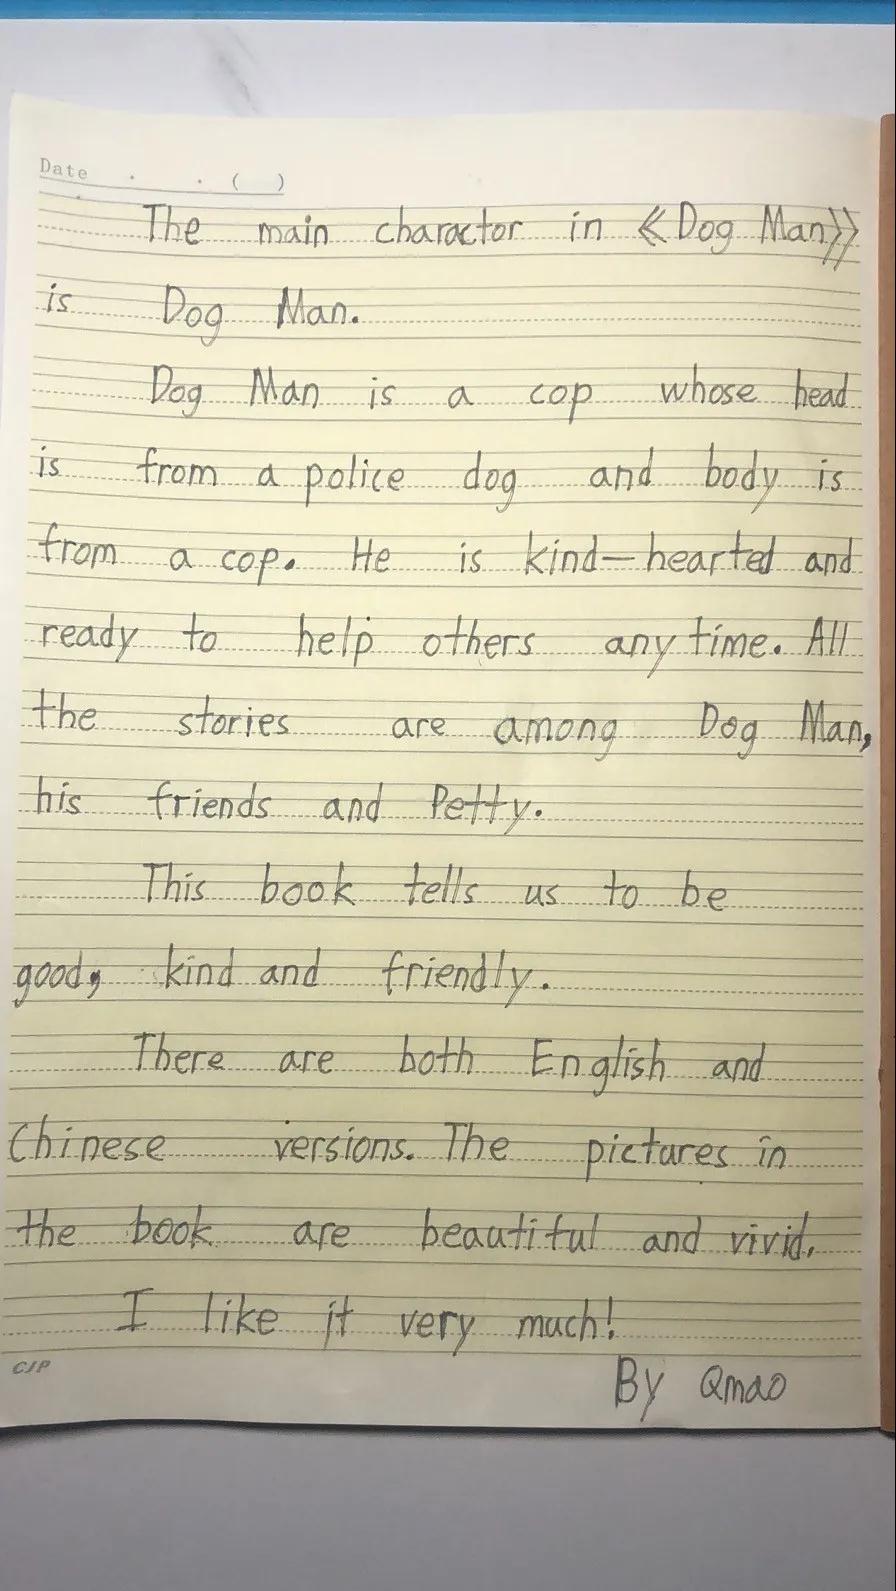 Date . . ( )
The main charactor in 《Dog Man》
is Dog Man.
Dog Man is a cop whose head
is from a police dog and body is
from a cop. He is kind-hearted and
ready to help others any time. All
the stories are among Dog Man,
his friends and Petty.
This book tells us to be
good, kind and friendly.
There are both English and
Chinese versions. The pictures in
the book are beautiful and vivid.
I like it very much!
CJP
By Qmao